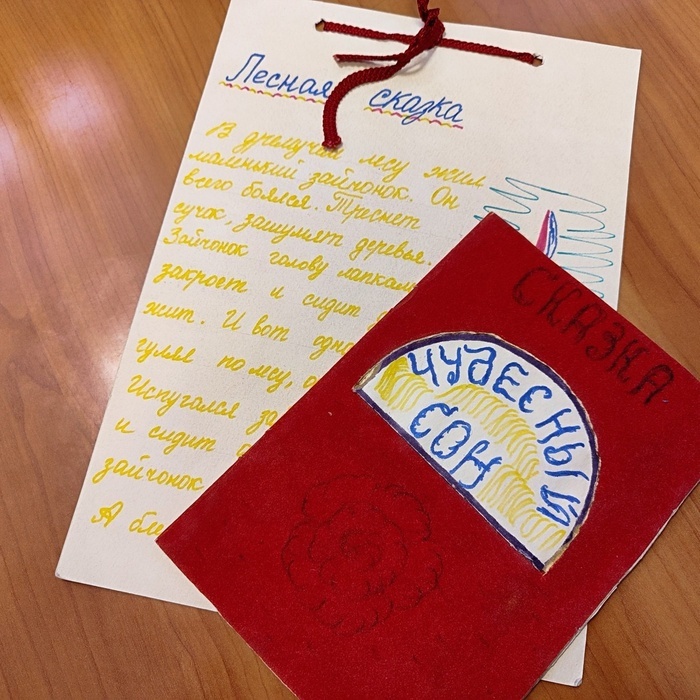 Лесная сказка
В дремучем лесу жил
маленький зайчонок. Он
всего боялся. Треснет
сучок, зашумят деревья.
Зайчонок голову
закроет и сидит
жит. И вот
гуляя по лесу,
Испугался
и сидит
зайчонок
А
СКАЗКА
ЧУДЕСНЫЙ
СОН